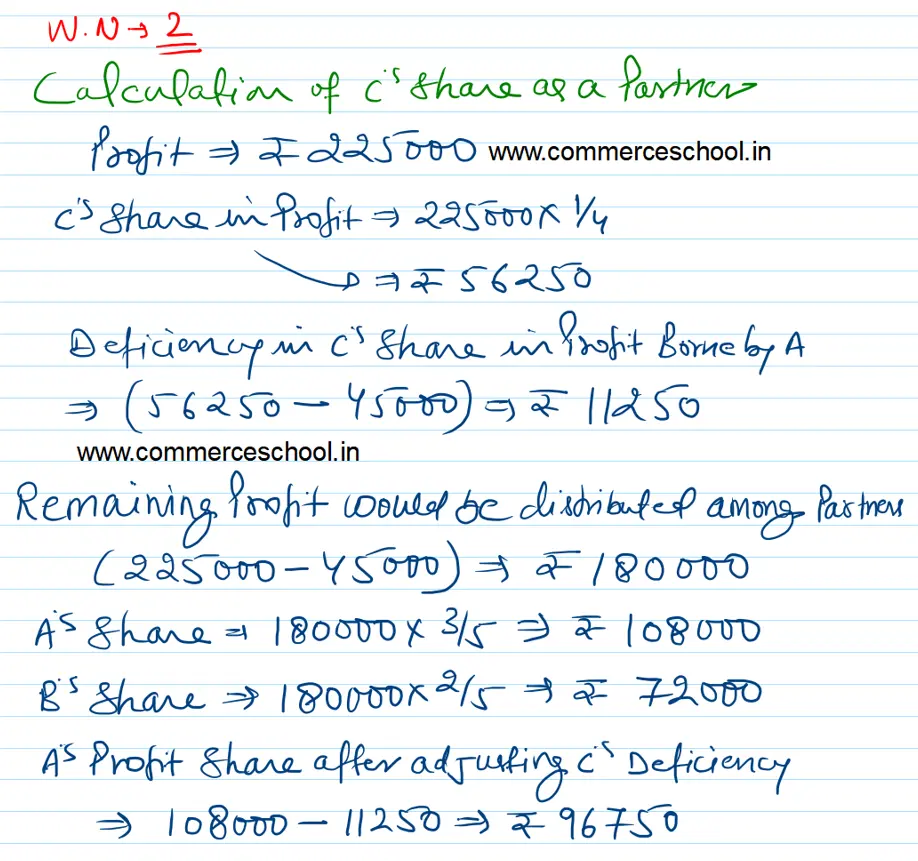 W.N → 2
Calculation of C's Share as a Partner
Profit ⇒ ₹ 225000 www.commerceschool.in
C's Share in Profit ⇒ 225000 x 1/4
⇒ ₹ 56250
Deficiency in C's Share in Profit Borne by A
⇒ (56250 - 45000) ⇒ ₹ 11250
www.commerceschool.in
Remaining Profit would be distributed among Partners
(225000 - 45000) ⇒ ₹ 180000
A's Share ⇒ 180000 x 3/5 ⇒ ₹ 108000
B's Share ⇒ 180000 x 2/5 ⇒ ₹ 72000
A's Profit Share after adjusting C's Deficiency
⇒ 108000 - 11250 ⇒ ₹ 96750